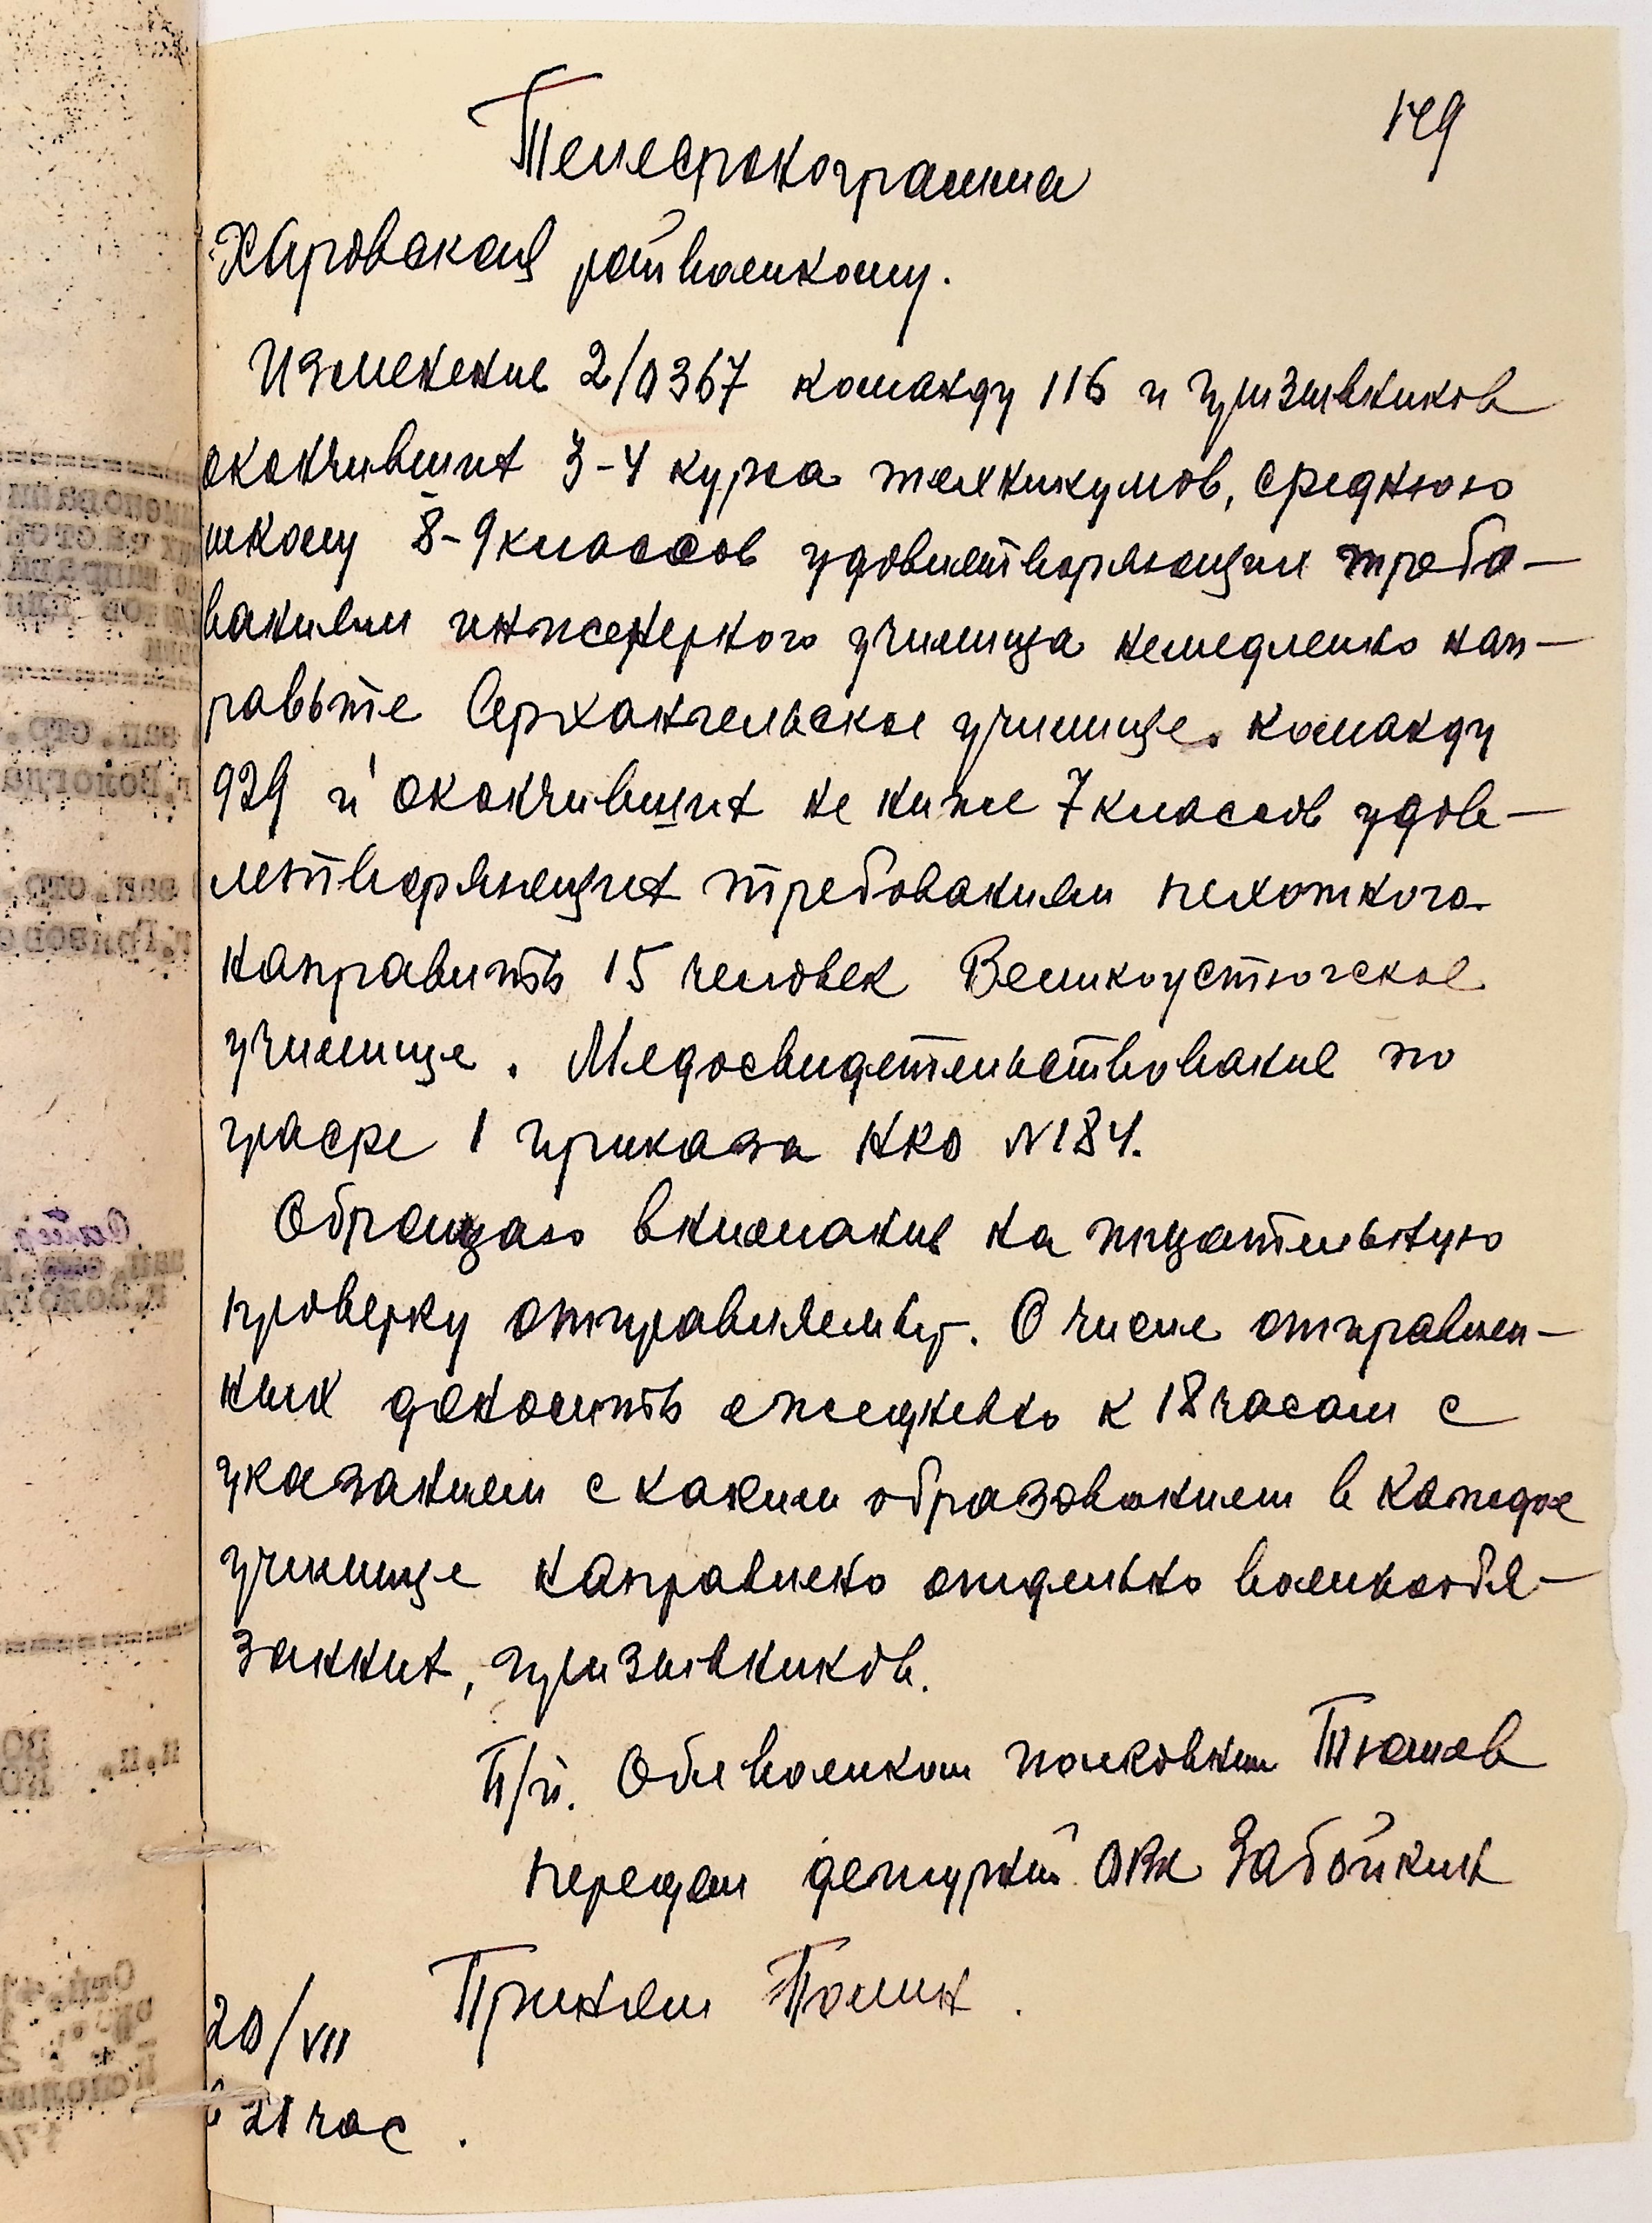 149
Телефонограмма
Харовская райвоенкому.
Изменение 2/0367 команду 116 и призывников
окончивших 3-4 курса техникумов, среднюю
школу 8-9 классов удовлетворяющим требо-
ваниям инженерного училища немедленно нап-
равьте Серхангельское училище. команду
929 и окончивших не ниже 7 классов удов-
летворяющих требованиям пехотного
направить 15 человек Великоустюгское
училище. Медосвидетельствование по
графе 1 приказа НКО N184.
Обращаю внимание на тщательную
проверку отправляемых. О числе отправлен-
ных доносить ежедневно к 18 часам с
указанием с каким образованием в каждое
училище направлено отдельно военнообя-
занных, призывников.
П/п. Облвоенком полковник
передал дежурный ОВК Забойкин
Принял
20/VII
в 21 час.